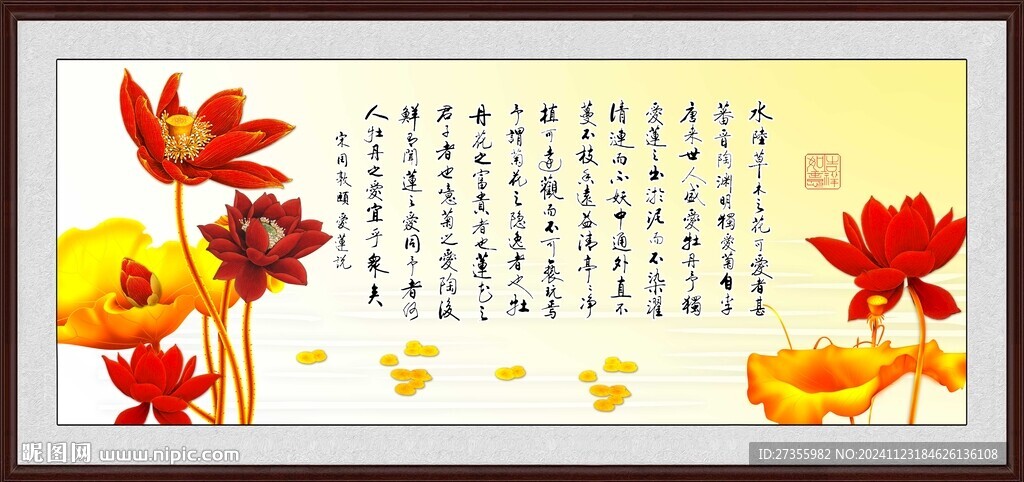 水陸草木之花可愛者甚
蕃晉陶淵明獨愛菊自李
唐来世人盛愛牡丹予獨
愛蓮之出淤泥而不染濯
清漣而不妖中通外直不
蔓不枝香遠益清亭亭淨
植可遠觀而不可褻玩焉
予謂菊花之隐逸者也牡
丹花之富貴者也蓮花之
君子者也噫菊之愛陶後
鮮有聞蓮之愛同予者何
人牡丹之愛宜乎衆矣
宋周敦頤愛蓮説
吉祥如意
昵图网 www.nipic.com
ID:27355982 NO:20241123184626136108